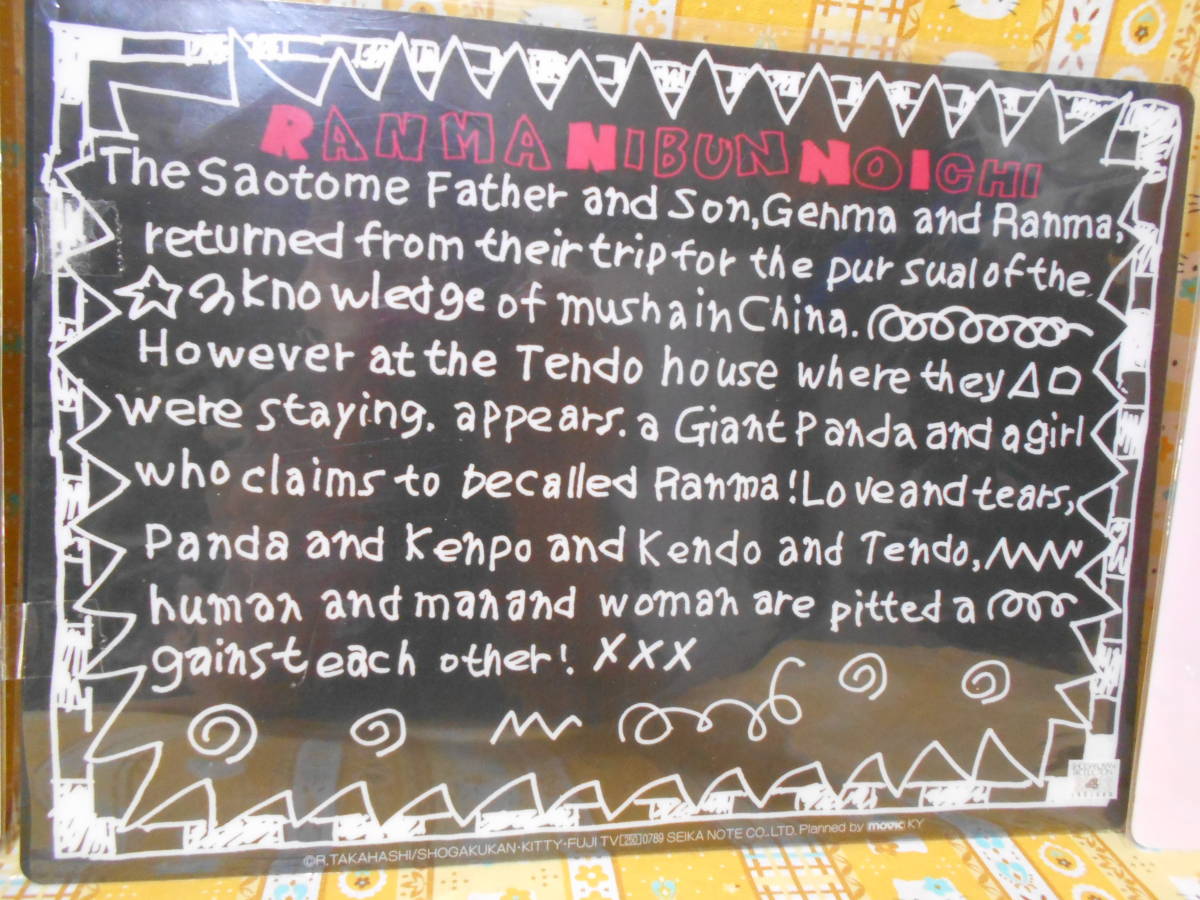 RANMA NIBUN NO ICHI
The Saotome Father and Son, Genma and Ranma,
returned from their trip for the pur sual of the
knowledge of musha in China.
However at the Tendo house where they
were staying. appears. a Giant Panda and a girl
who claims to be called Ranma! Love and tears,
Panda and Kenpo and Kendo and Tendo,
human and man and woman are pitted a
gainst each other! XXX
©R.TAKAHASHI/SHOGAKUKAN·KITTY·FUJI TV 250 0789 SEIKA NOTE CO.,LTD. Planned by movic KY